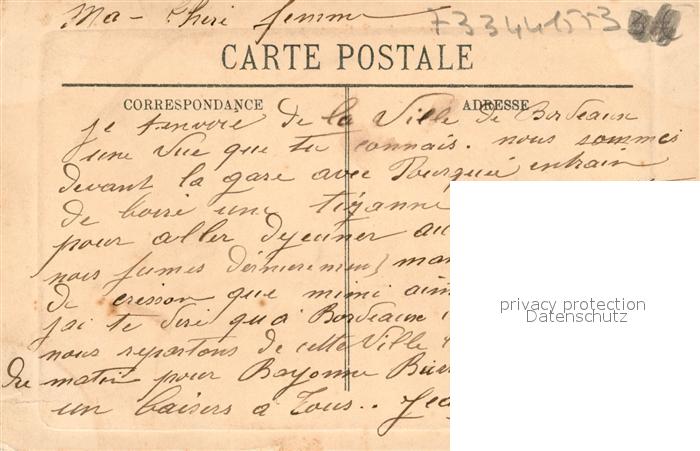 Ma - Cheri femme
73344553
CARTE POSTALE
CORRESPONDANCE
ADRESSE
je tenvoie de la Ville de Bordeaux
une vue que tu connais. nous sommes
devant la gare avec entrain
de boire une tizanne
pour aller dejeuner au
nous fumes dernierement
de cresson que mimi aim
j'ai te dire qu'a Bordeaux
nous repartons de cette Ville
du matin pour Bayonne
un baisers a Tous..
privacy protection
Datenschutz